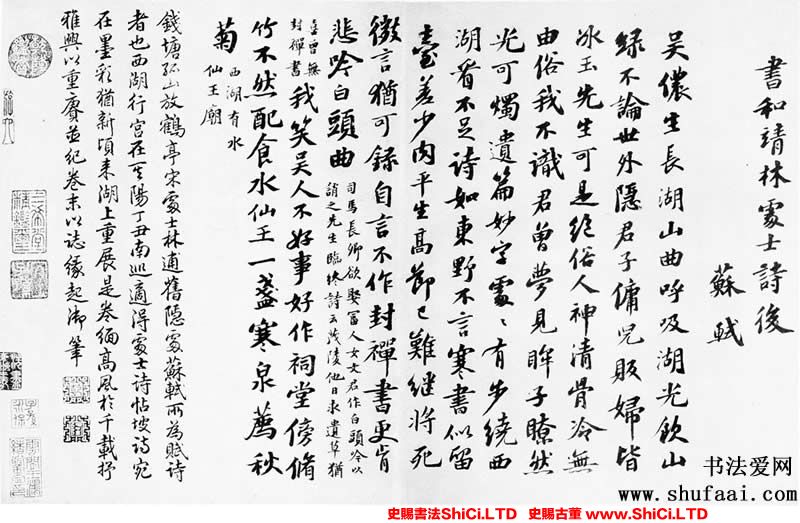 書和靖林處士詩後
蘇軾
吳儂生長湖山曲呼吸湖光飲山
綠不論世外隱君子傭兒販婦皆
冰玉先生可是絕俗人神清骨冷無
由俗我不識君曾夢見眸子瞭然
光可燭遺篇妙字處〻有步繞西
湖看不足詩如東野不言寒書似留
臺差少肉平生高節已難繼將死
微言猶可錄自言不作封禪書更肯
悲吟白頭曲
司馬長卿欲娶富人女文君作白頭吟以
誚之先生臨終詩云茂陵他日求遺草猶
喜曾無
封禪書
我笑吳人不好事好作祠堂傍脩
竹不然配食水仙王一盞寒泉薦秋
菊
西湖有水
仙王廟
錢塘孤山放鶴亭宋處士林逋舊隱處蘇軾所為賦詩
者也西湖行宮在其陽丁丑南巡適得處士詩帖坡詩宛
在墨彩猶新頃来湖上重展是卷緬高風於千載抒
雅興以重賡並紀卷末以誌緣起御筆
书法爱网
www.shufaai.com
史賜書法ShiCi.LTD 史賜古董 www.ShiCi.LTD